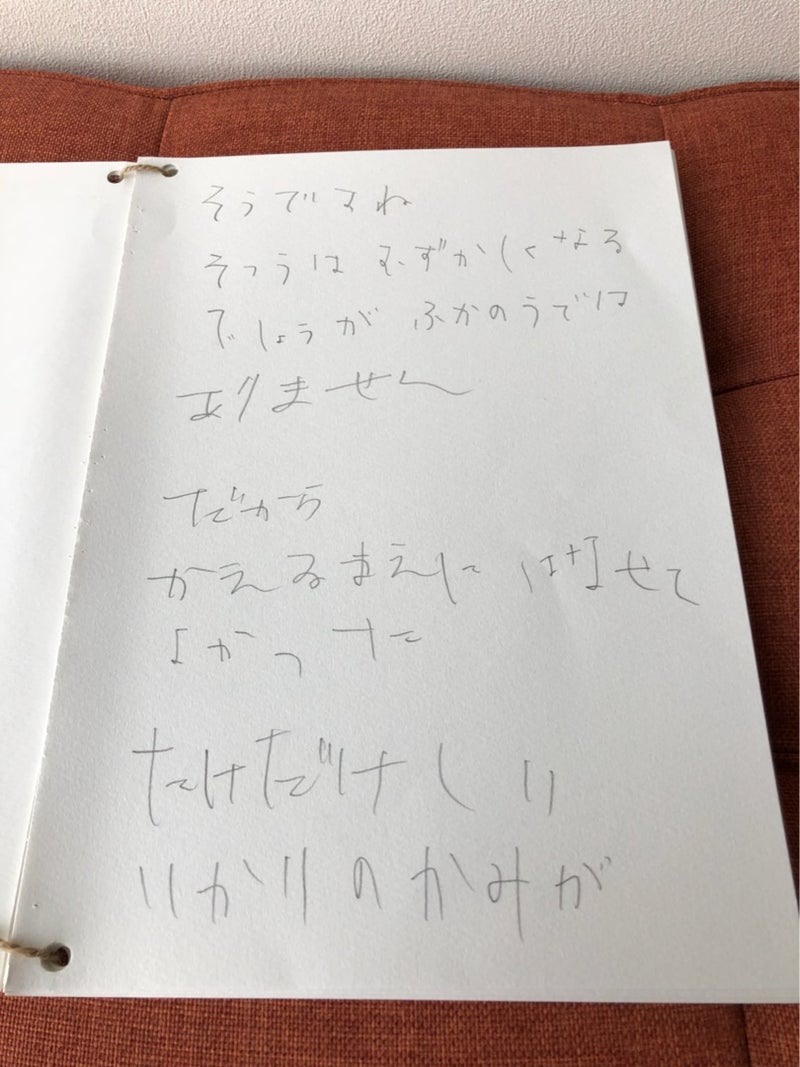 そうですね
そつうは むずかしくなる
でしょうが ふかのうでは
ありません
だから
かえるまえに はなせて
よかった
たけだけしい
いかりのかみが